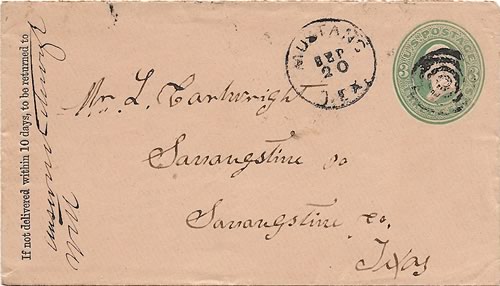 MUSTANG
SEP
20
TEX.
U.S. POSTAGE
Mr. L. Cartwright
Sanangstine Po
Sanangstine Co,
Texas
If not delivered within 10 days, to be returned to